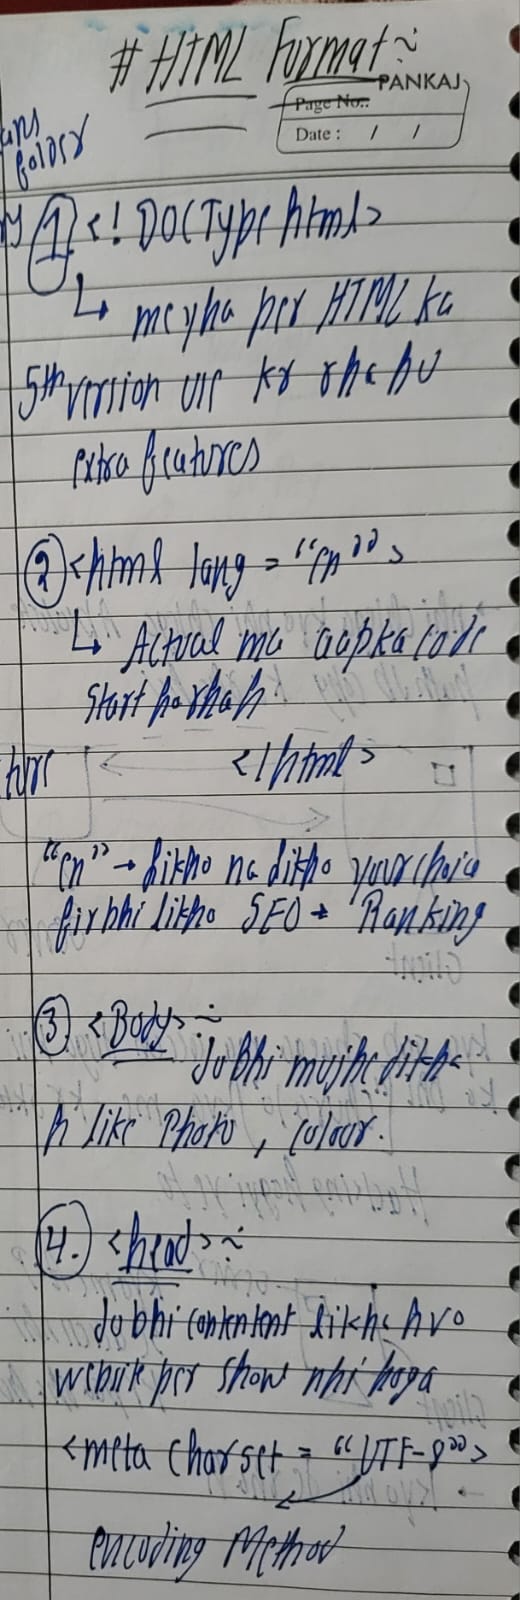 # HTML Format ~
PANKAJ
Page No.:
Date : / /
folder
1 <! DOCType html>
↳ me yha per HTML ka
5th version use kr rha hu
extra features
2 <html lang = "en">
↳ Actual ma aapka code
start ho rha h
</html>
ture
"en" → likho na likho your choice
fir bhi likho SEO → Ranking
3. <Body> ~
Jo bhi mujhe dikha
h like Photo, colour.
4. <head> ~
Jo bhi contentent likha h vo
website per show nhi hoga
<meta charset = "UTF-8">
encoding Method